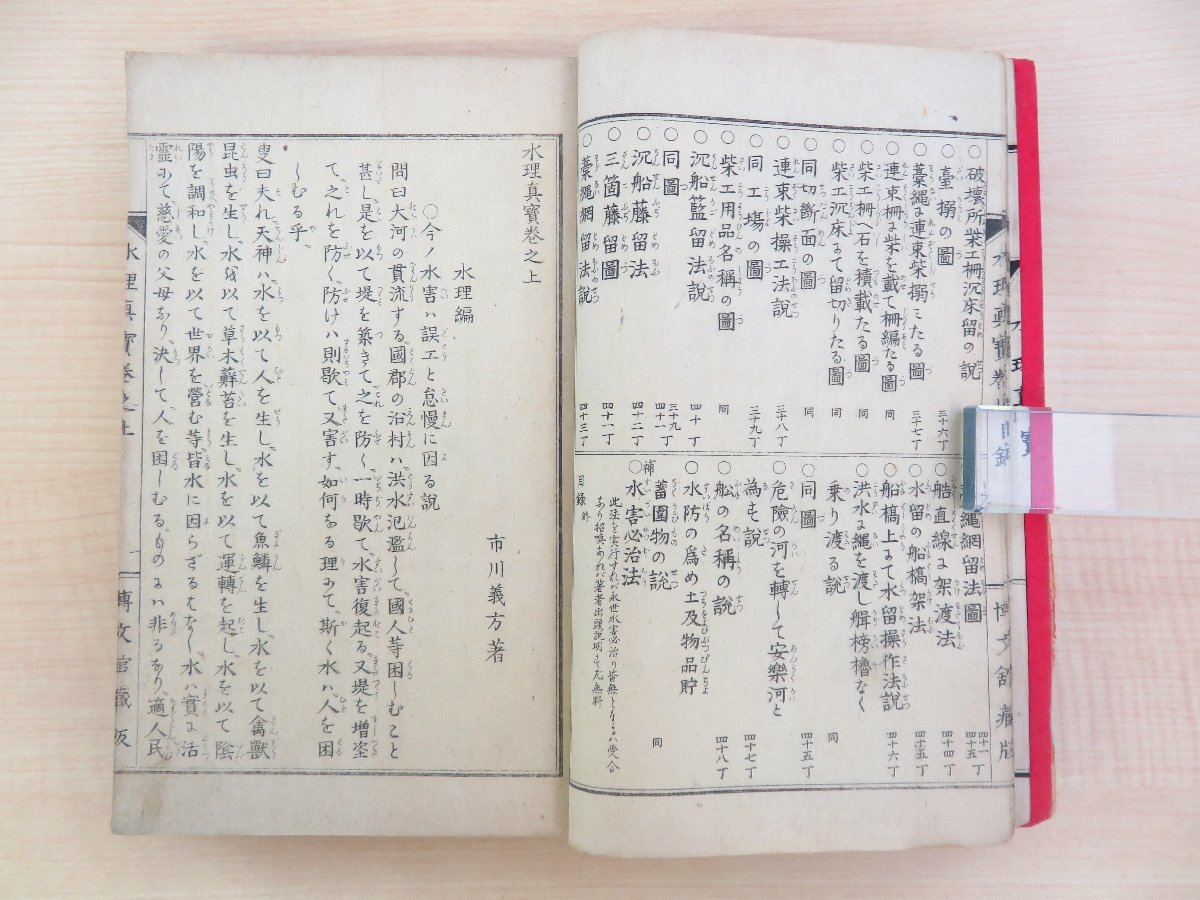 ○破壞所柴工柵沉床留の說
○臺搦の圖 三十六丁
○藁繩に連束柴搦ミたる圖 三十七丁
○連束柵に柴を載て柵編たる圖 同
○柴工柵へ石を積載たる圖
○柴工沉床まて留切りたる圖
○同切斷面の圖 同
○連束柴操工法說 三十八丁
○同工塲の圖 三十九丁
○柴工用品名稱の圖 同
○沉船籃留法說 四十丁
○同圖 三十九丁 四十一丁
○沉船藤留法 四十二丁
○三箇藤留圖 四十一丁
○藁繩網留法說 四十三丁
繩網留法圖 四十一丁
○舩直線に架渡法 四十五丁
○水留の船槁架法 四十四丁
○船槁上まて水留操作法說 四十五丁
○洪水に繩を渡し艀榜櫓なく 四十六丁
乘り渡る說 同
○同圖 四十五丁
○危險の河を轉して安樂河と
為す說 四十七丁
○舩の名稱の說 四十八丁
○水防の爲め土及物品貯
蓄圍物の說 同
補○水害必治法
此法を実行すれバ永世水害必治り皆無となるハ受合
あり招喚あれバ著者出頭說明す尤無料
目錄終
水理真寶卷
博文館藏版
水理真寶卷之上
水理編
市川義方著
○今ノ水害ハ誤工と怠慢に因る說
問曰大河の貫流する國郡の沿村ハ洪水氾濫して國人等困しむこと
甚し是を以て堤を築きて之を防く一時歇て水害復起る又堤を増埊
て之れを防く防けハ則歇て又害す如何なる理にて斯く水ハ人を困
しむる乎
叟曰夫れ天神ハ水を以て人を生し水を以て魚鱗を生し水を以て禽獸
昆虫を生し水を以て草木蘚苔を生し水を以て運轉を起し水を以て陰
陽を調和し水を以て世界を營む等皆水に因らざるはなし水ハ實に活
霊にて慈愛の父母なり決して人を困しむるものにハ非るなり適人民
水理真寶卷之上
一
博文館藏版